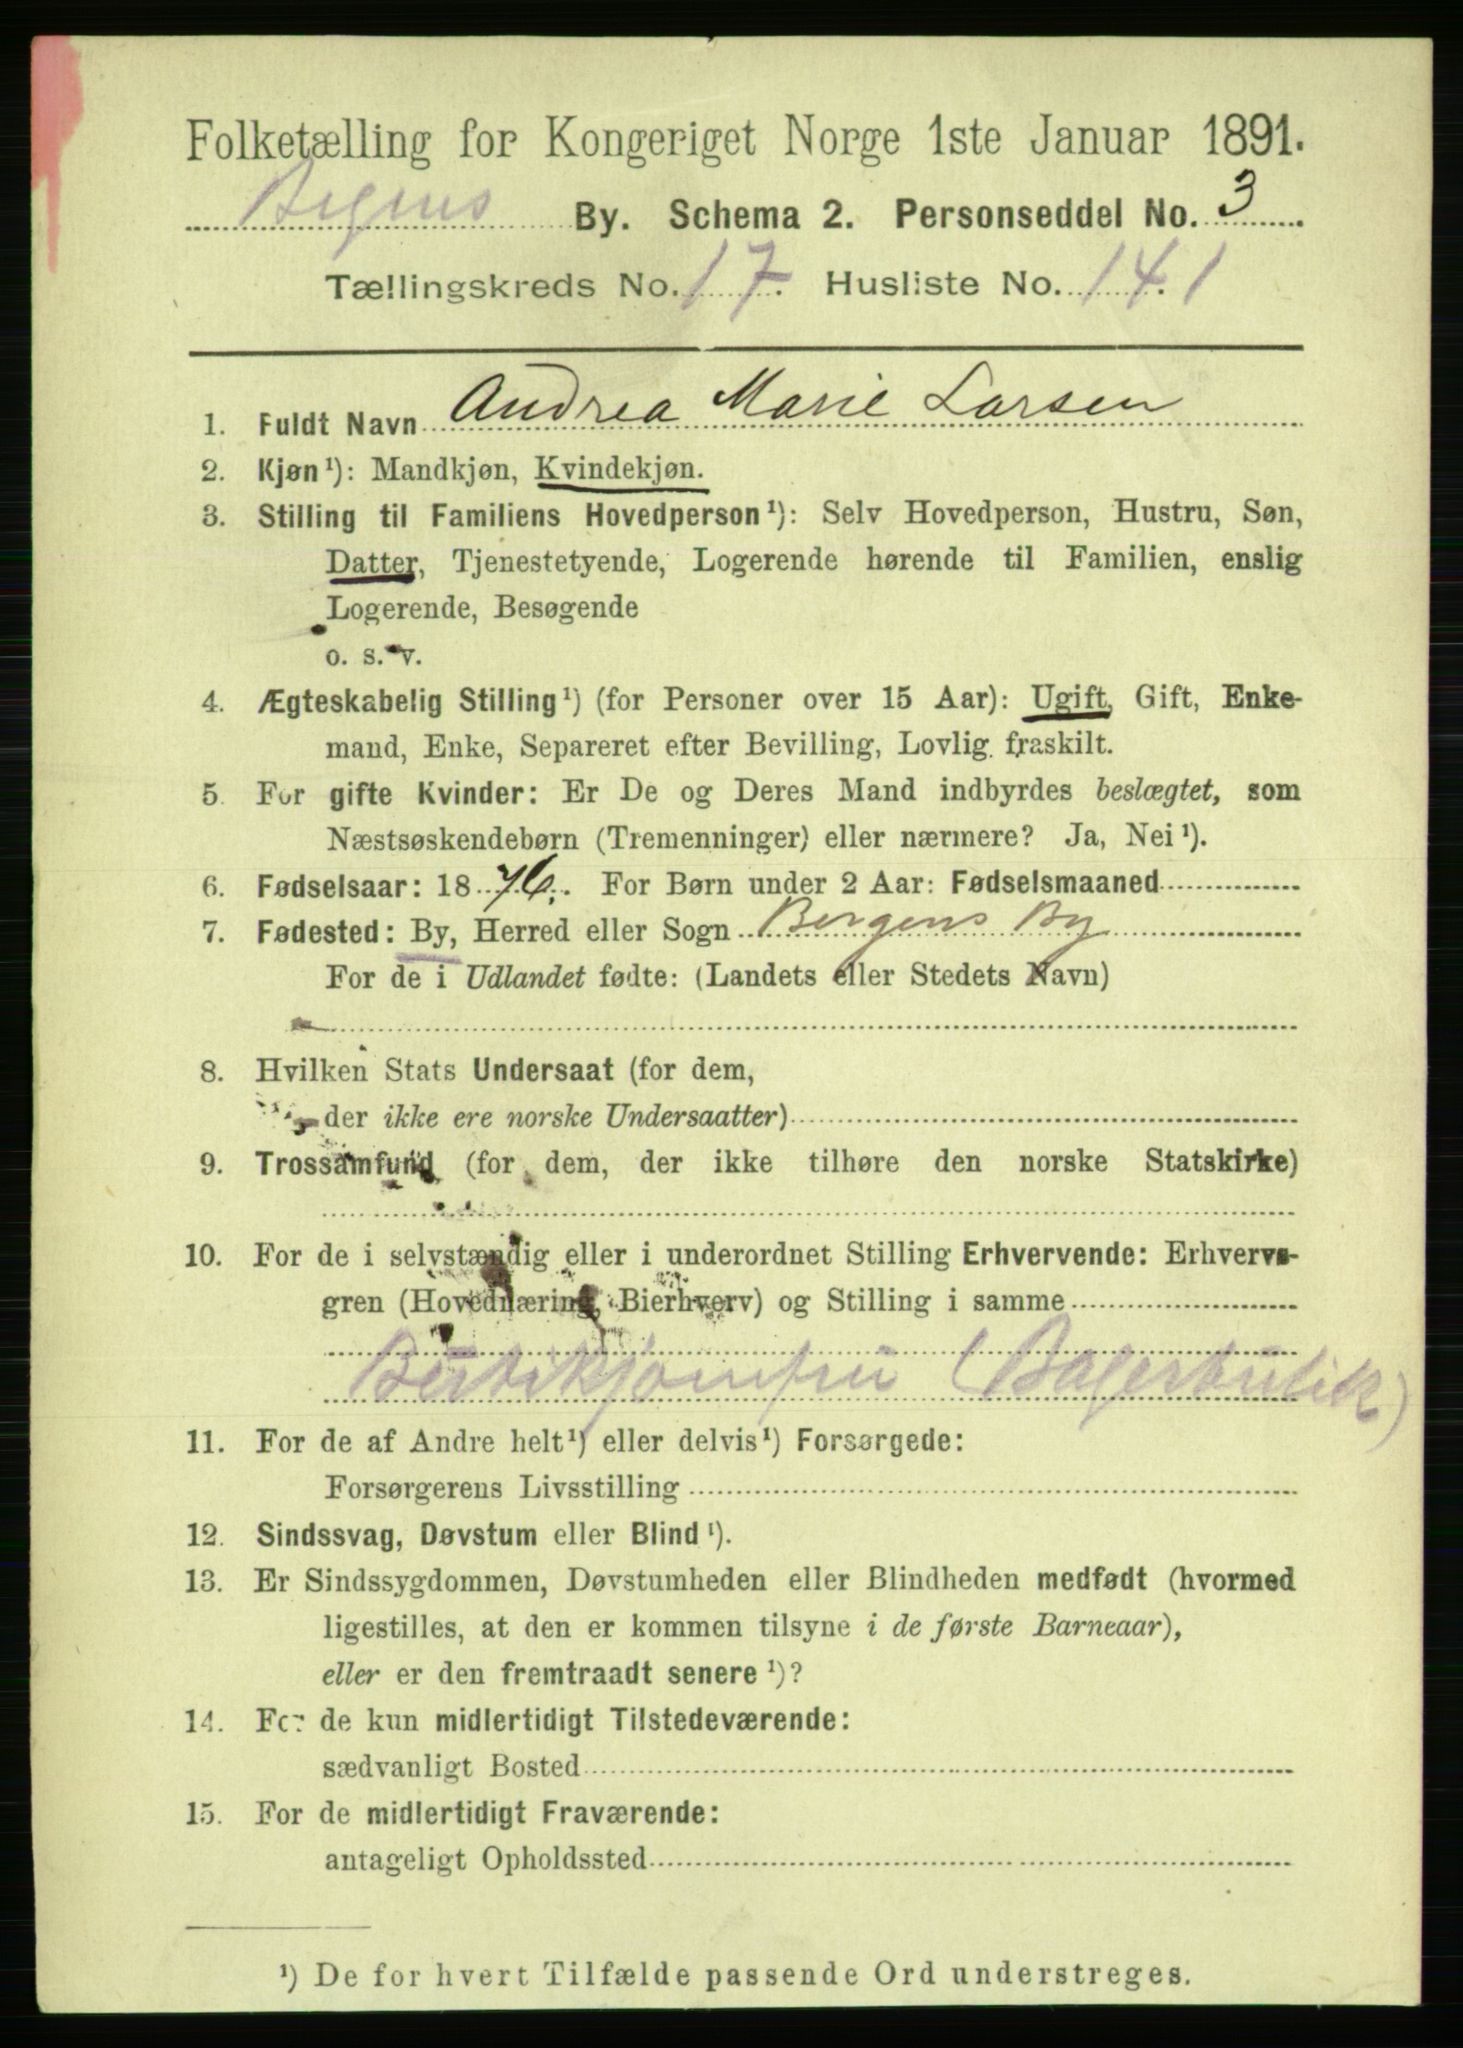 Folketælling for Kongeriget Norge 1ste Januar 1891.
Bergens By. Schema 2. Personseddel No. 3
Tællingskreds No. 17. Husliste No. 141
1. Fuldt Navn Andrea Marie Larsen
2. Kjøn¹): Mandkjøn, Kvindekjøn.
3. Stilling til Familiens Hovedperson¹): Selv Hovedperson, Hustru, Søn,
Datter, Tjenestetyende, Logerende hørende til Familien, enslig
Logerende, Besøgende
o. s. v.
4. Ægteskabelig Stilling¹) (for Personer over 15 Aar): Ugift, Gift, Enke-
mand, Enke, Separeret efter Bevilling, Lovlig fraskilt.
5. For gifte Kvinder: Er De og Deres Mand indbyrdes beslægtet, som
Næstsøskendebørn (Tremenninger) eller nærmere? Ja, Nei¹).
6. Fødselsaar: 1876. For Børn under 2 Aar: Fødselsmaaned
7. Fødested: By, Herred eller Sogn Bergens By
For de i Udlandet fødte: (Landets eller Stedets Navn)
8. Hvilken Stats Undersaat (for dem,
der ikke ere norske Undersaatter)
9. Trossamfund (for dem, der ikke tilhøre den norske Statskirke)
10. For de i selvstændig eller i underordnet Stilling Erhvervende: Erhvervs-
gren (Hovednæring, Bierhverv) og Stilling i samme
Butikjomfru (Bagerbutik)
11. For de af Andre helt¹) eller delvis¹) Forsørgede:
Forsørgerens Livsstilling
12. Sindssvag, Døvstum eller Blind¹).
13. Er Sindssygdommen, Døvstumheden eller Blindheden medfødt (hvormed
ligestilles, at den er kommen tilsyne i de første Barneaar),
eller er den fremtraadt senere¹)?
14. For de kun midlertidigt Tilstedeværende:
sædvanligt Bosted
15. For de midlertidigt Fraværende:
antageligt Opholdssted
¹) De for hvert Tilfælde passende Ord understreges.